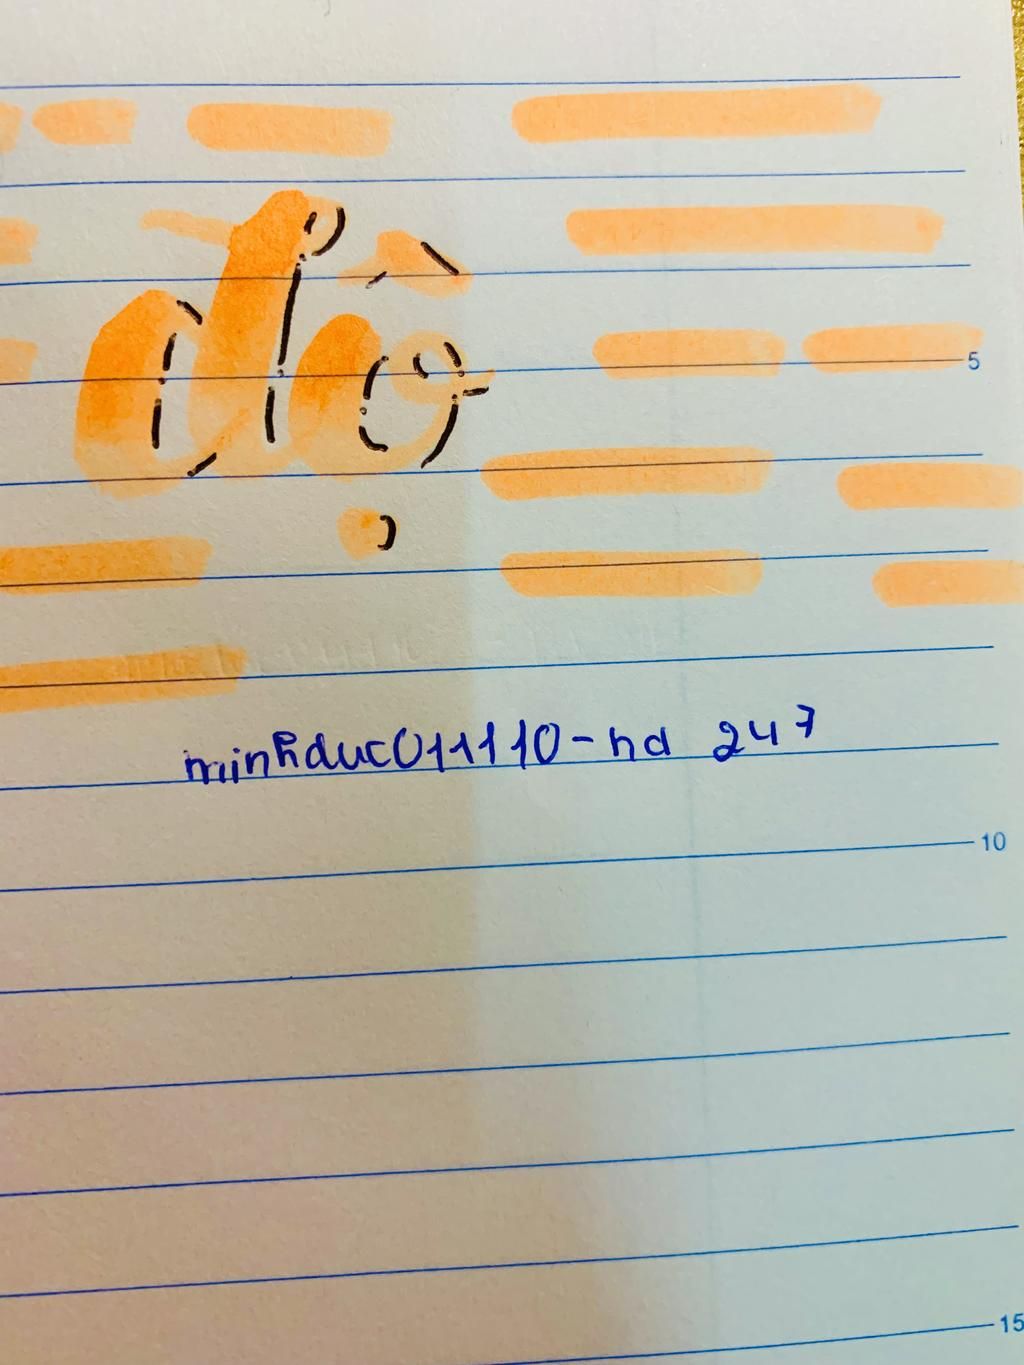 độ
5
minhduc011110-hd 247
10
15